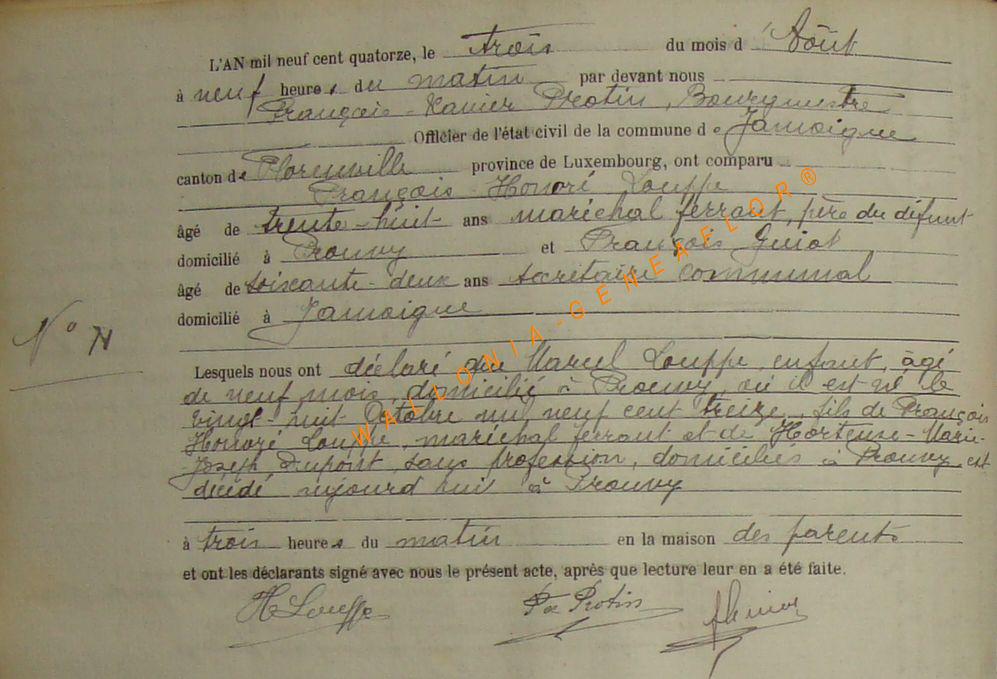 L'AN mil neuf cent quatorze, le trois du mois d' Août
à neuf heures du matin par devant nous
François-Xavier Protin, Bourgmestre
Officier de l'état civil de la commune de Jamoigne
canton de Florenville province de Luxembourg, ont comparu
François-Honoré Louppe
âgé de trente-huit ans maréchal ferrant, père du défunt
domicilié à Prouvy et François Guiot
âgé de soixante-deux ans secrétaire communal
domicilié à Jamoigne
N° 71
Lesquels nous ont déclaré que Marcel Louppe, enfant, âgé
de neuf mois, domicilié à Prouvy, où il est né le
vingt-huit Octobre mil neuf cent treize, fils de François
Honoré Louppe, maréchal ferrant et de Hortense-Marie-
Joseph Dupont, sans profession, domiciliés à Prouvy, est
décédé aujourd'hui à Prouvy
à trois heures du matin en la maison des parents
et ont les déclarants signé avec nous le présent acte, après que lecture leur en a été faite.
H Louppe Protin
WALLONIA-GENEAFLOR®